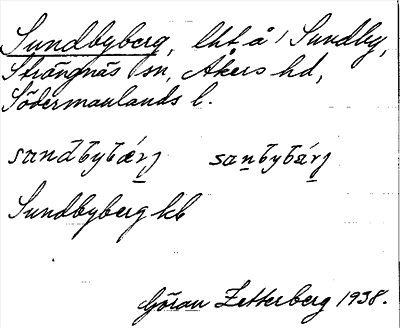 Sundbyberg, lht å 1 Sundby,
Strängnäs sn, Åkers hd,
Södermanlands l.
Sundbyberg kb
Göran Zetterberg 1938.